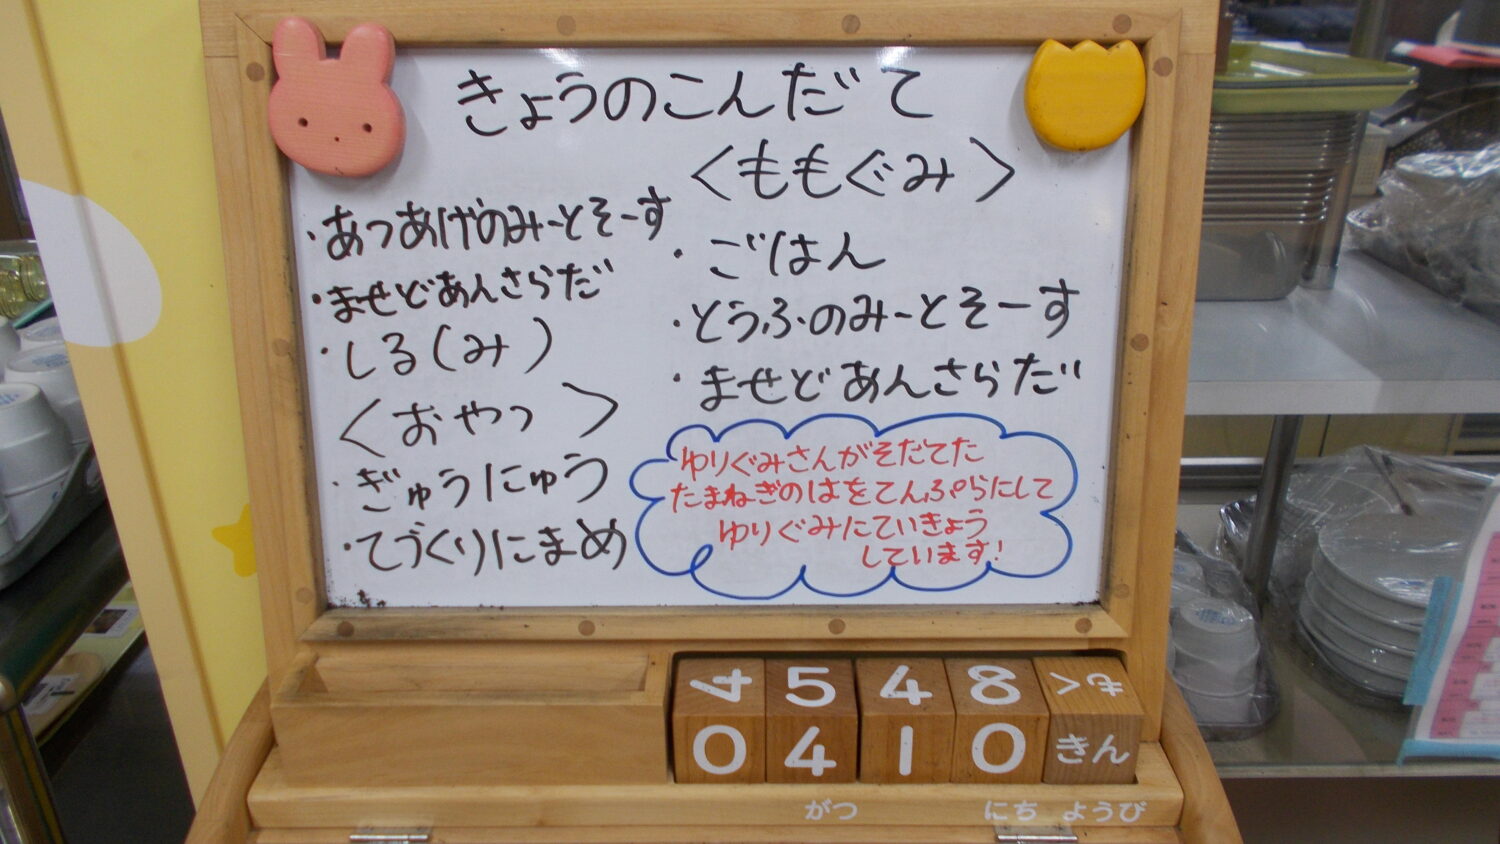 きょうのこんだて
・あつあげのみーとそーす
・ませどあんさらだ
・しる(み)
<おやつ>
・ぎゅうにゅう
・てづくりにまめ
<ももぐみ>
・ごはん
・とうふのみーとそーす
・ませどあんさらだ
ゆりぐみさんがそだてた
たまねぎのはをてんぷらにして
ゆりぐみにていきょう
しています!
4 5 4 8
0 4 1 0 きん
がつ にち ようび